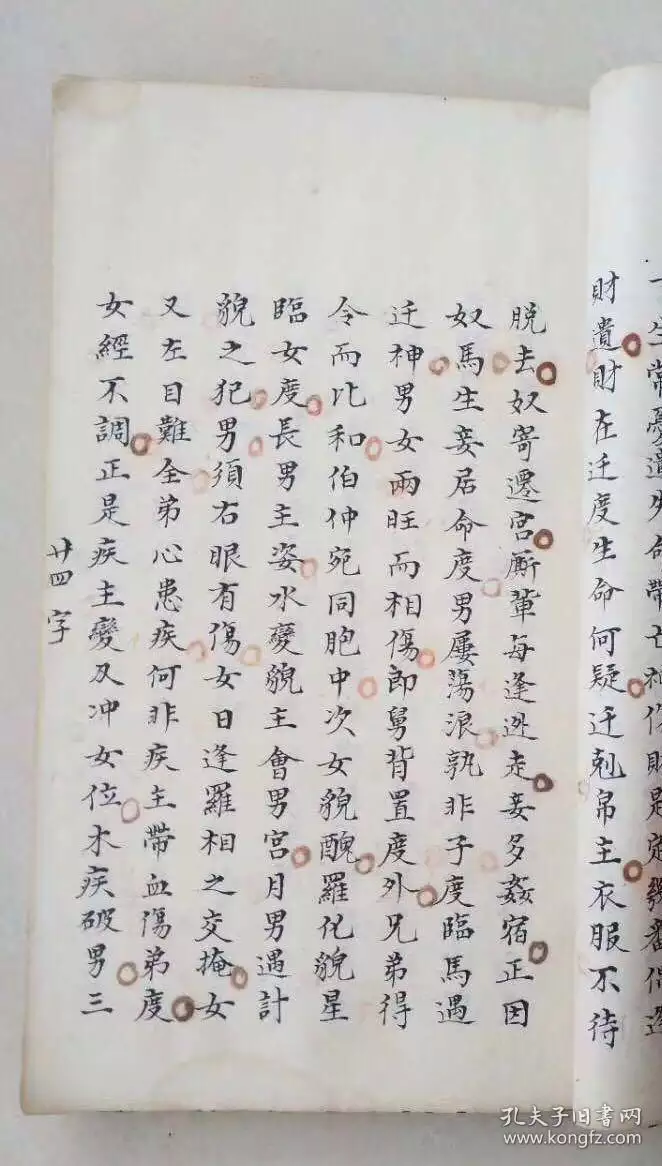 一生常憂遺失命帶亡神傷財是
財遺財在迁度生命何疑迁剋帛主衣服不待
脫去奴寄遷宮厮輩每逢迯走妾多姦宿正因
奴馬生妾居命度男屢蕩浪孰非子度臨馬遇
迁神男女兩旺而相傷郎舅背置度外兄弟得
令而比和伯仲宛同胞中次女貌醜羅化貌星
臨女度長男主姿水變貌主會男宮月男遇計
貌之犯男須右眼有傷女日逢羅相之交掩女
又左目難全弟心患疾何非疾主帶血傷弟度
女經不調正是疾主變及冲女位木疾破男三
廿四字
孔夫子旧書网
www.kongfz.com